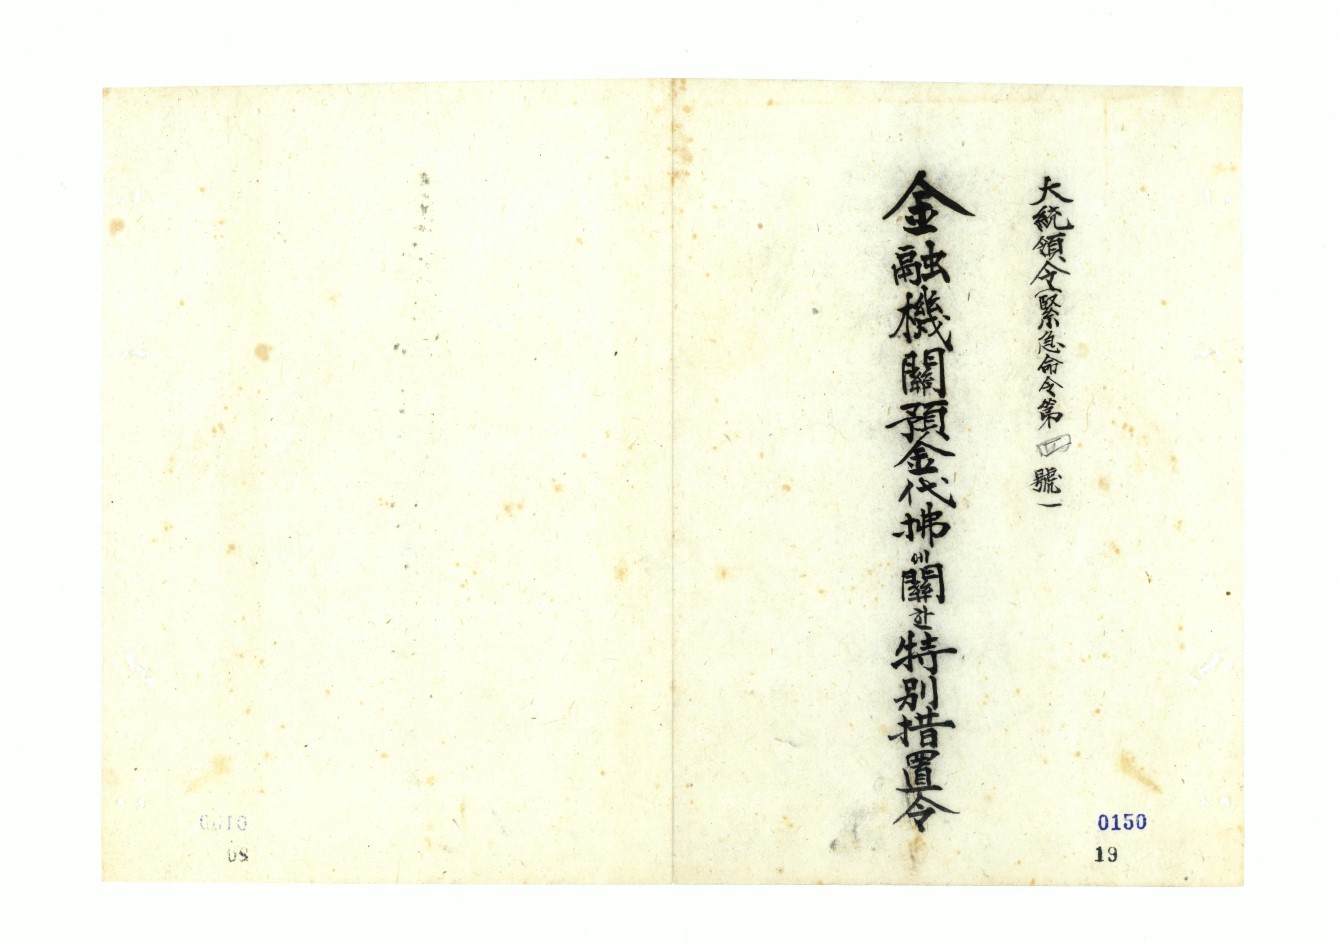 大統領令(緊急命令第四號)
金融機關預金代拂에關한特別措置令
0150
19